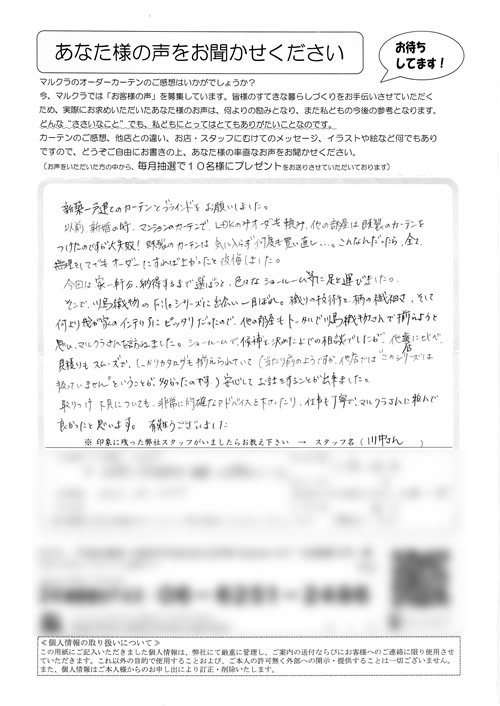 あなた様の声をお聞かせください
お待ち
してます！
マルクラのオーダーカーテンのご感想はいかがでしょうか？
今、マルクラでは「お客様の声」を募集しています。皆様のすてきな暮らしづくりをお手伝いさせていただく
ため、実際にお求めいただいたあなた様のお声は、何よりの励みとなり、また私どもの今後の参考となります。
どんな“ささいなこと”でも、私どもにとってはとてもありがたいことなのです。
カーテンのご感想、他店との違い、お店・スタッフにむけてのメッセージ、イラストや絵など何でもあり
ですので、どうぞご自由にお書きの上、あなた様の率直なお声をお聞かせください。
（お声をいただいた方の中から、毎月抽選で１０名様にプレゼントをお送りさせていただいております）
新築一戸建てのカーテンとブラインドをお願いしました。
以前、新婚の時、マンションのカーテンで、LDKのみオーダーを頼み、他の部屋は既製のカーテンを
つけたのですが大失敗！既製のカーテンは気に入らず何度も買い直し…。これなんだったら、全て、
無理をしてでもオーダーにすれば良かったと後悔しました。
今回は家一軒分、納得するまで選ぼうと、色々なショールーム等に足を運びました。
そこで、川島織物のFiloシリーズに出会い一目ぼれ。織りの技術と柄の繊細さ、そして
何より我が家のインテリアにピッタリだったので、他の部屋もトータルで川島織物さんで揃えようと
思い、マルクラさんを訪ねました。ショールームで候補を決めた上での相談でしたが、他店に比べ、
見積りもスムーズで、しっかりカタログも揃えられていて（当たり前のようですが、他店では“このシリーズは
扱っていません”ということが多かったのです。）安心してお話をすることが出来ました。
取りつけ下見についても、非常に的確なアドバイスを下さったり、仕事も丁寧で、マルクラさんに頼んで
良かったと思います。有難うございました
※ 印象に残った弊社スタッフがいましたらお教え下さい → スタッフ名（ 川中さん ）
≪個人情報の取り扱いについて≫
この用紙にご記入いただきました個人情報は、弊社にて厳重に管理し、ご案内の送付ならびにお客様へのご連絡に限り使用させ
ていただきます。これ以外の目的で使用することおよび、ご本人の許可無く外部への開示・提供することは一切ございません。
また、個人情報はご本人様からのお申し出により訂正・削除いたします。